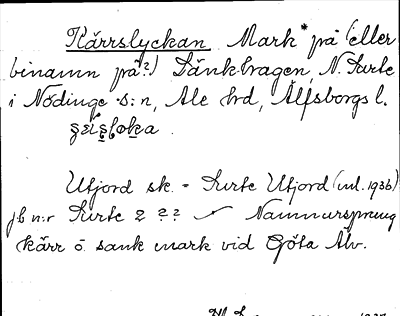 Kärrslyckan Mark* på (eller
binamn på?) Sänkhagen, N. Surte
i Nödinge s:n, Ale hrd, Älfsborgs l.
Utjord sk. = Surte Utjord (inl. 1936)
jb n:r Surte 2 ?? Namnursprung
kärr o. sank mark vid Göta Älv.